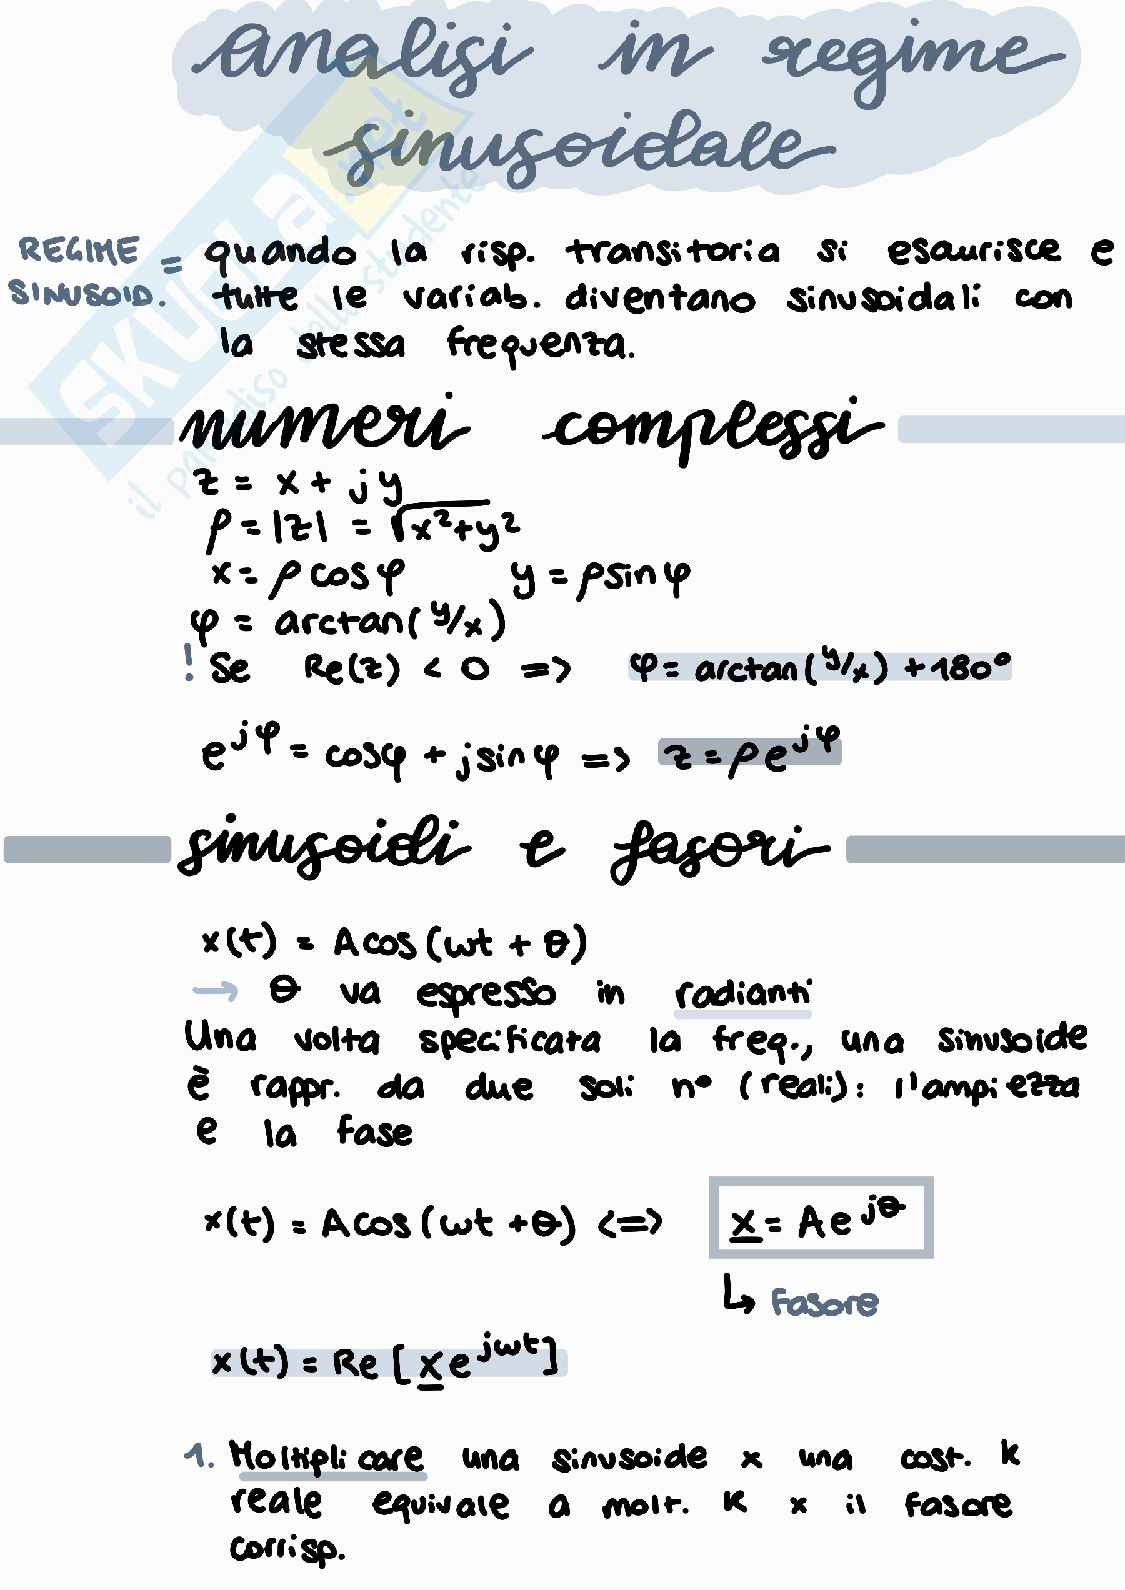 analisi in regime
sinusoidale
REGIME SINUSOID. = quando la risp. transitoria si esaurisce e
tutte le variab. diventano sinusoidali con
la stessa frequenza.
numeri complessi
z = x + jy
ρ = |z| = √x²+y²
x = ρ cosφ y = ρsinφ
φ = arctan(y/x)
! Se Re(z) < 0 => φ = arctan(y/x) + 180°
e^jφ = cosφ + jsinφ => z = ρe^jφ
sinusoidi e fasori
x(t) = Acos(ωt + θ)
→ θ va espresso in radianti
Una volta specificata la freq., una sinusoide
è rappr. da due soli n° (reali): l'ampiezza
e la fase
x(t) = Acos(ωt + θ) <=> x = Ae^jθ
↳ Fasore
x(t) = Re[xe^jωt]
1. Moltiplicare una sinusoide x una cost. K
reale equivale a molt. K x il fasore
corrisp.
SKUOLA.net
il paradiso dello studente